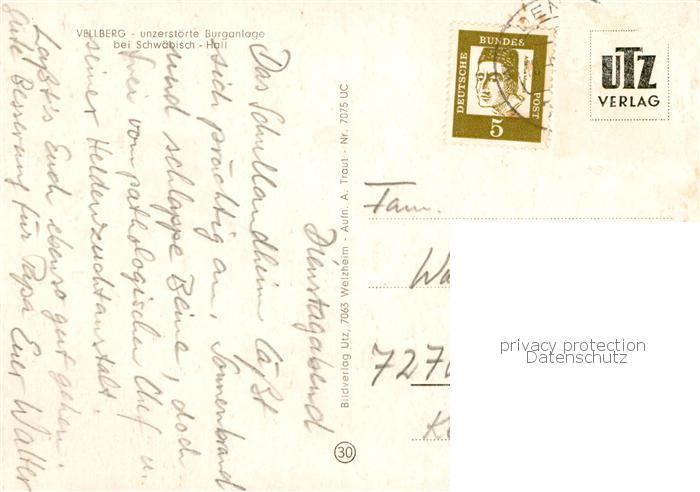 VELLBERG - unzerstörte Burganlage
bei Schwäbisch - Hall
Dienstagabend
Das Schullandheim läßt
sich prächtig an, Sonnenbrand
und schlappe Beine, doch
frei vom pathologischen Chef u.
seiner Heldenzuchtanstalt.
Laßt's Euch ebenso gut gehen.
Gute Besserung für Papa Euer Walter
Bildverlag Utz, 7063 Welzheim - Aufn. A. Traut - Nr. 7075 UC
30
DEUTSCHE
BUNDES
POST
5
UTZ
VERLAG
Fam.
727
privacy protection
Datenschutz